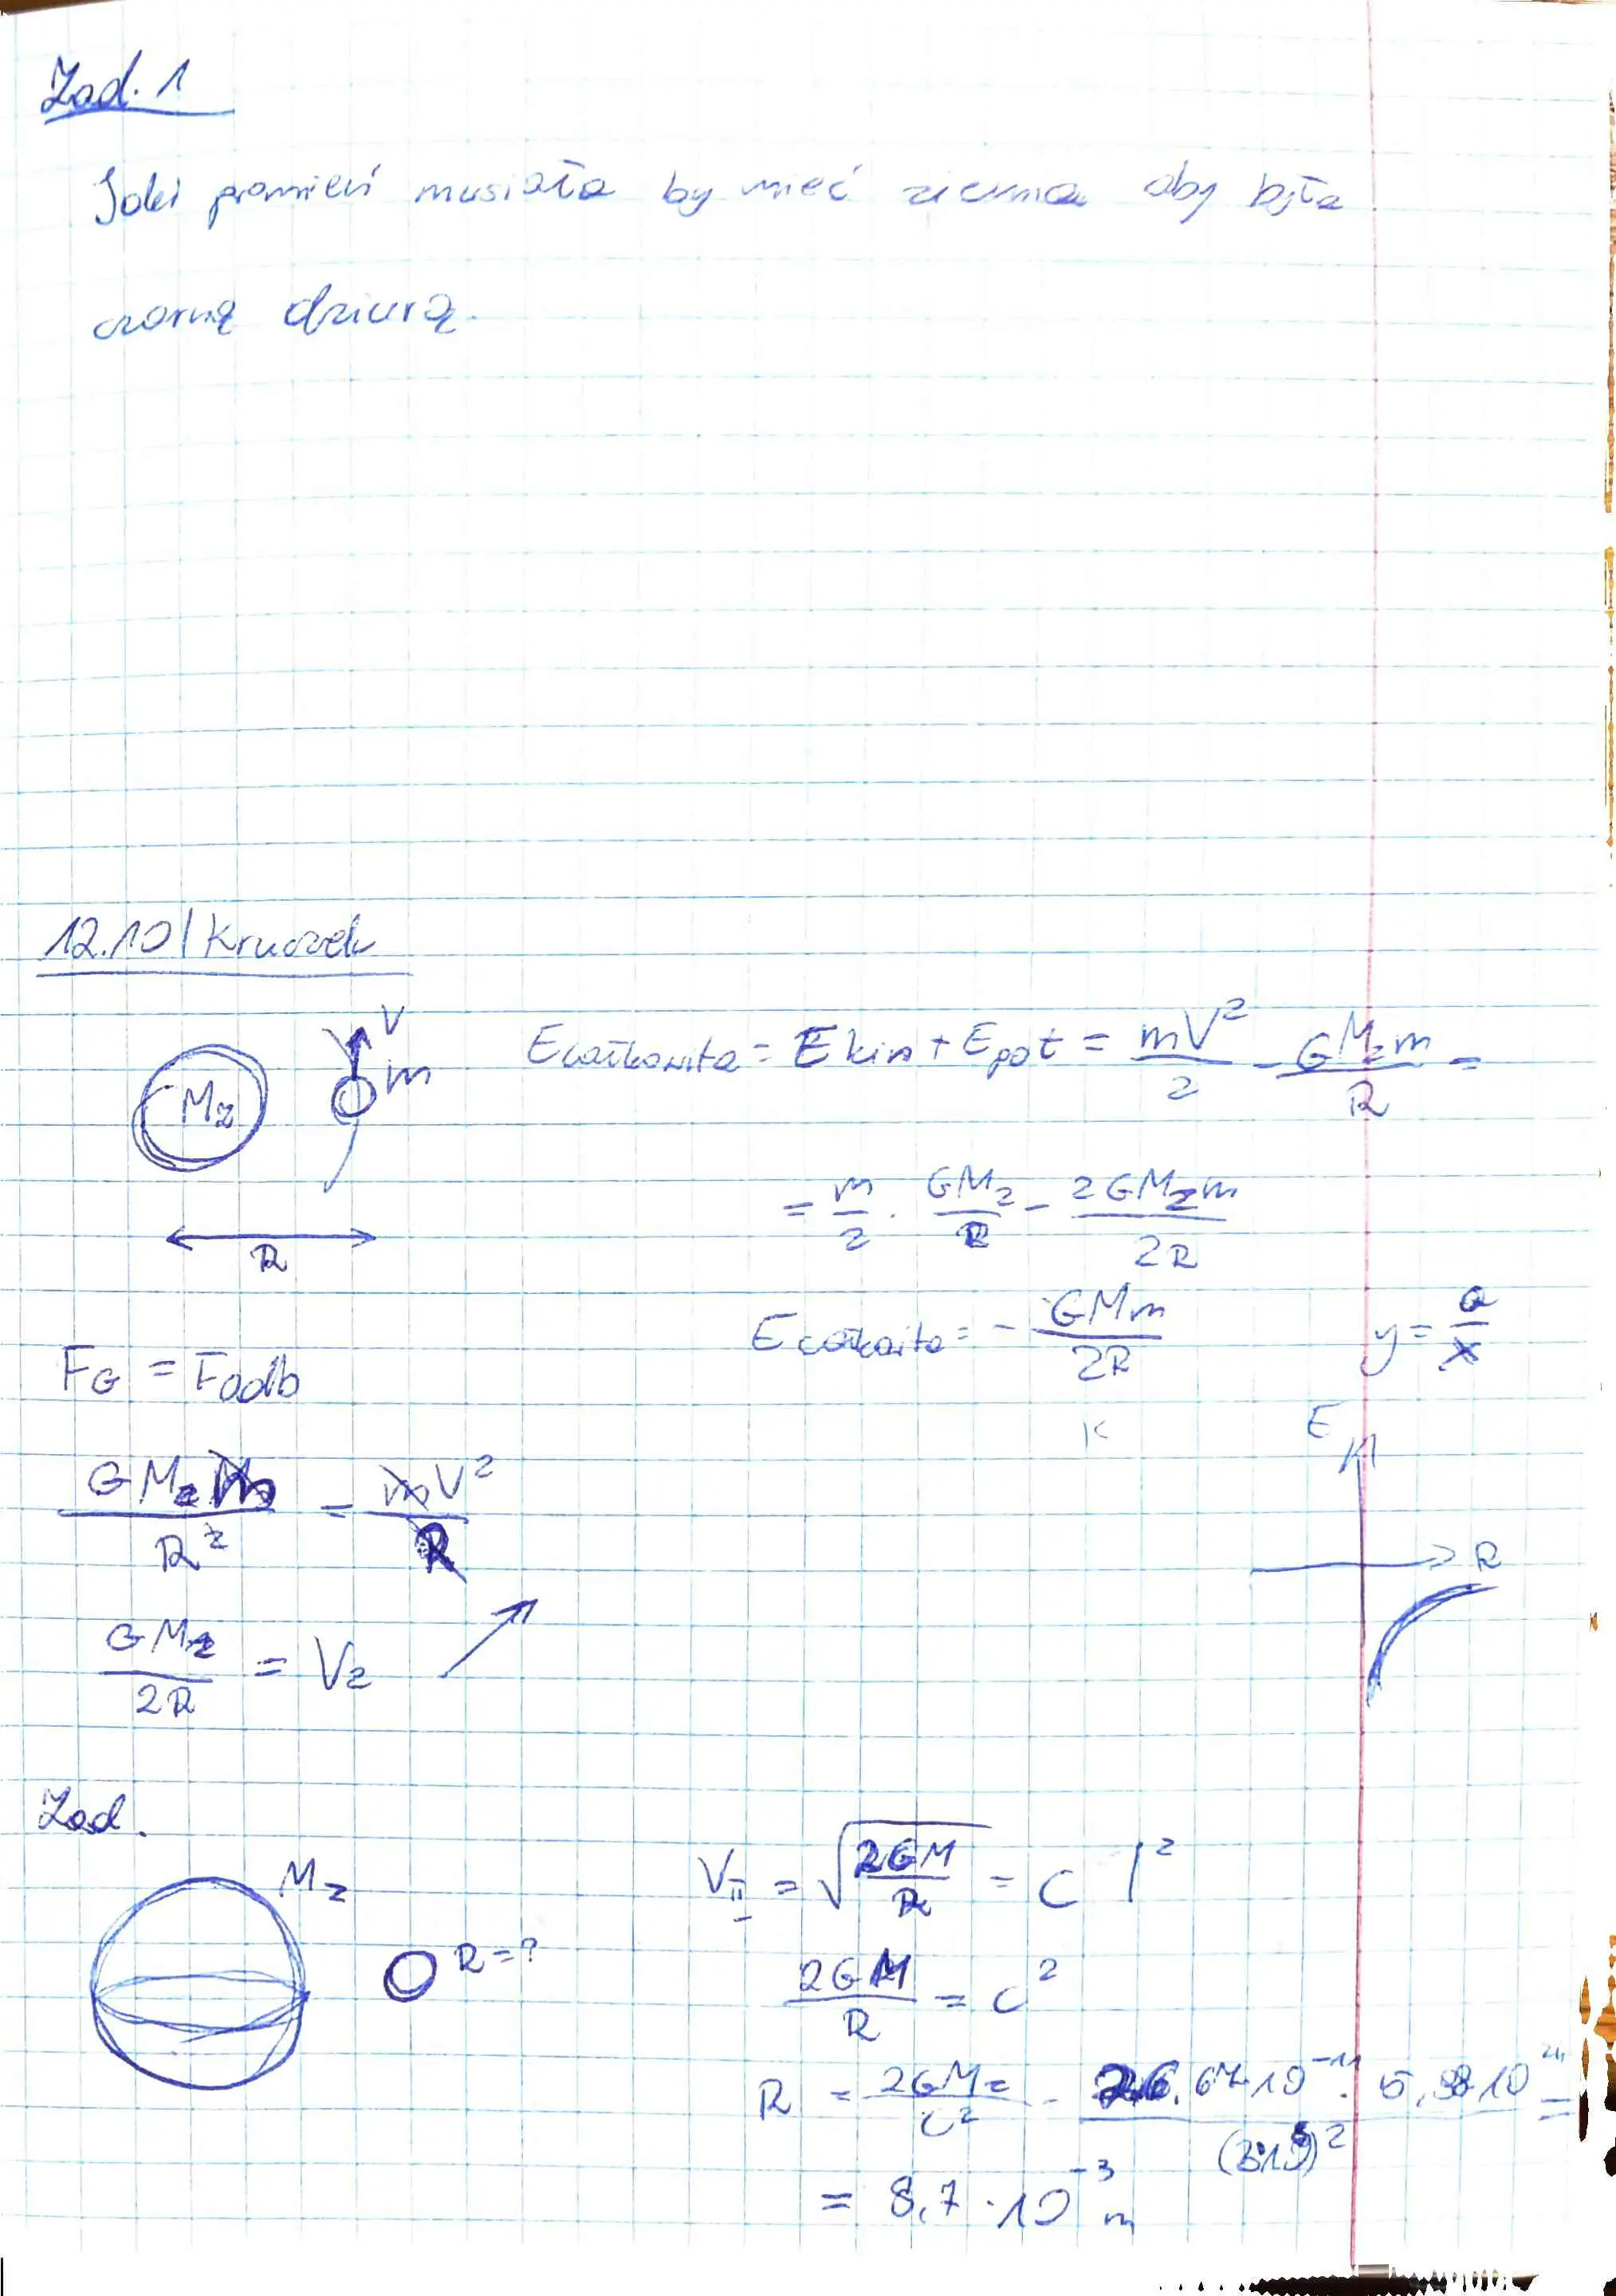 Zad. 1
Jaki promień musiała by mieć ziemia aby była
czarną dziurą.
12.10 / Kruczek
V
m
Mz
R
Ecałkowita = Ekin + Epot = mV²/2 - GMzm/R =
= m/2 · GMz/R - 2GMzm/2R
Ecałkowita = - GMm/2R
y = a/x
FG = Fodb
K
E
R
GMzm/R² = mV²/R
GMz/2R = V2
Zad.
Mz
R = ?
VII = √(2GM/R) = C |²
2GM/R = C²
R = 2GMz/C² = 2·6,67·10⁻¹¹ · 5,98·10²⁴/(3·10⁸)² =
= 8,7 · 10⁻³ m